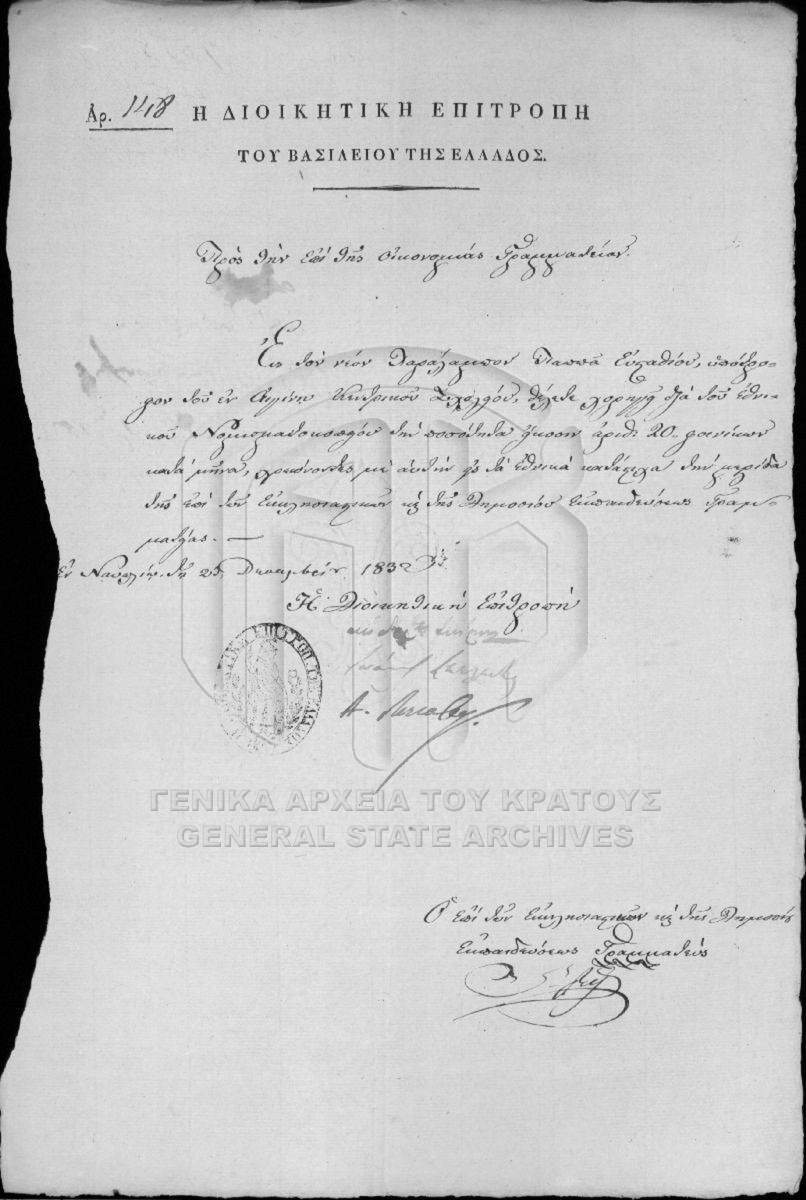 Αρ. 148 Η ΔΙΟΙΚΗΤΙΚΗ ΕΠΙΤΡΟΠΗ
ΤΟΥ ΒΑΣΙΛΕΙΟΥ ΤΗΣ ΕΛΛΑΔΟΣ.
Πρὸς τὴν ἐπὶ τῆς Οἰκονομίας Γραμματείαν.
Εἰς τὸν νέον Χαράλαμπον Παππᾶ Εὐσταθίου, ὑπότρο-
φον τοῦ ἐν Αἰγίνῃ Κεντρικοῦ Σχολείου, θέλετε χορηγεῖ διὰ τοῦ Ἐθνι-
κοῦ Νομισματοκοπείου τὴν ποσότητα εἴκοσιν ἀριθ: 20. φοινίκων
κατὰ μῆνα, χρεώνοντες μὲ αὐτὴν εἰς τὰ Ἐθνικὰ κατάστιχα τὴν μερίδα
τῆς ἐπὶ τῶν Ἐκκλησιαστικῶν κὶ τῆς Δημοσίου Ἐκπαιδεύσεως Γραμ-
ματείας. —
Ἐν Ναυπλίῳ τῇ 25 Δεκεμβρίου 1832
Ἡ Διοικητικὴ Ἐπιτροπὴ
ΓΕΝΙΚΑ ΑΡΧΕΙΑ ΤΟΥ ΚΡΑΤΟΥΣ
GENERAL STATE ARCHIVES
Ὁ ἐπὶ τῶν Ἐκκλησιαστικῶν κὶ τῆς Δημοσίου
Ἐκπαιδεύσεως Γραμματεὺς